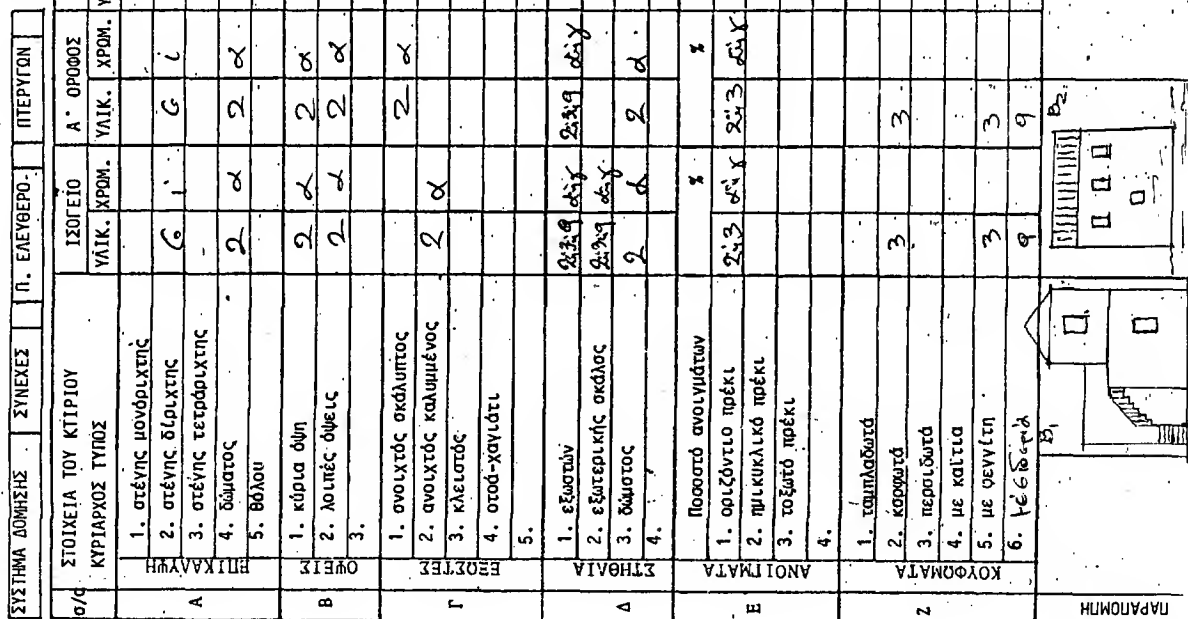 ΣΥΣΤΗΜΑ ΔΟΜΗΣΗΣ ΣΥΝΕΧΕΣ Π. ΕΛΕΥΘΕΡΟ- ΠΤΕΡΥΓΩΝ
α/α ΣΤΟΙΧΕΙΑ ΤΟΥ ΚΤΙΡΙΟΥ ΙΣΟΓΕΙΟ Α' ΟΡΟΦΟΣ
ΚΥΡΙΑΡΧΟΣ ΤΥΠΟΣ ΥΛΙΚ. ΧΡΩΜ. ΥΛΙΚ. ΧΡΩΜ.
Α ΕΠΙΚΑΛΥΨΗ
1. στέγης μονόριχτης
2. στέγης δίριχτης 6 i 6 i
3. στέγης τετράριχτης
4. δώματος 2 α 2 α
5. θόλου
Β ΟΨΕΙΣ
1. κύρια όψη 2 α 2 α
2. λοιπές όψεις 2 α 2 α
3.
Γ ΕΞΩΣΤΕΣ
1. ανοιχτός ακάλυπτος 2 α
2. ανοιχτός καλυμμένος 2 α
3. κλειστός
4. στοά-χαγιάτι
5.
Δ ΣΤΗΘΑΙΑ
1. εξωστών
2. εξωτερικής σκάλας
3. δώματος 2 α 2 α
4.
Ε ΑΝΟΙΓΜΑΤΑ
Ποσοστό ανοιγμάτων % %
1. οριζόντιο πρέκι 2ή3 αήγ 2ή3 αήγ
2. ημικυκλικό πρέκι
3. τοξωτό πρέκι
4.
Ζ ΚΟΥΦΩΜΑΤΑ
1. ταμπλαδωτά
2. καρφωτά 3 3
3. περσιδωτά
4. με καΐτια
5. με φεγγίτη 3 3
6. 9 9
ΠΑΡΑΠΟΜΠΗ
Β1 Β2